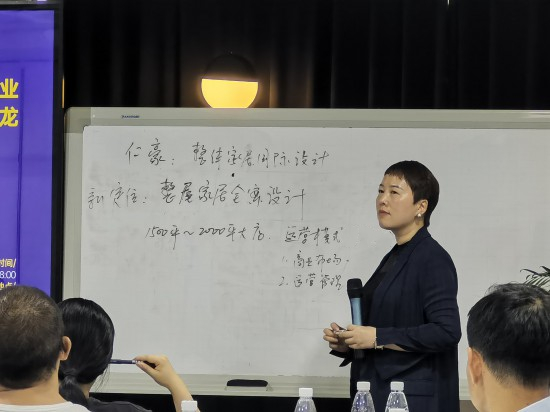 业
龙
时间/
8:00
地点/
仁豪：整体家居国际设计
新定位：整屋家居全案设计
1500平～2000平大店.
运营模式
1.商业布局
2.运营管理